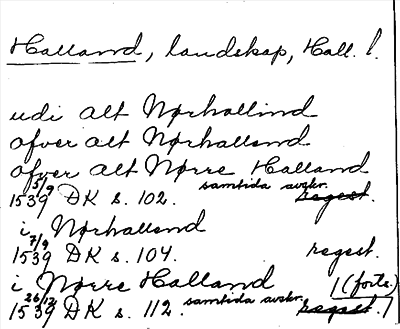 Halland, landskap, Hall. l.
udi alt Nørhallind
ofver alt Nørhallend
ofver alt Nørre Halland
1539 5/9 DK s. 102. samtida avskr. regest.
i Nørhallend
1539 7/9 DK s. 104. regest.
i Nørre Halland
1539 26/12 DK s. 112. samtida avskr. regest. /(forts.)/